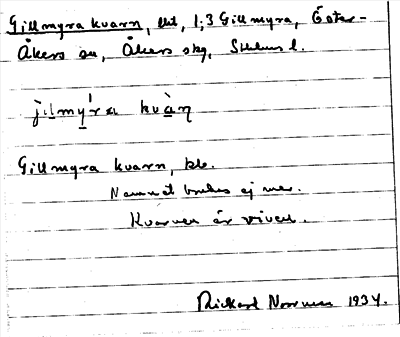 Gillmyra kvarn, lht, 1,3 Gillmyra, Öster-
Åkers sn, Åkers skg, Sthlms l.
kvàṇ
Gillmyra kvarn, kb.
Namnet brukas ej mer.
Kvarnen är riven.
Rickard 1934.